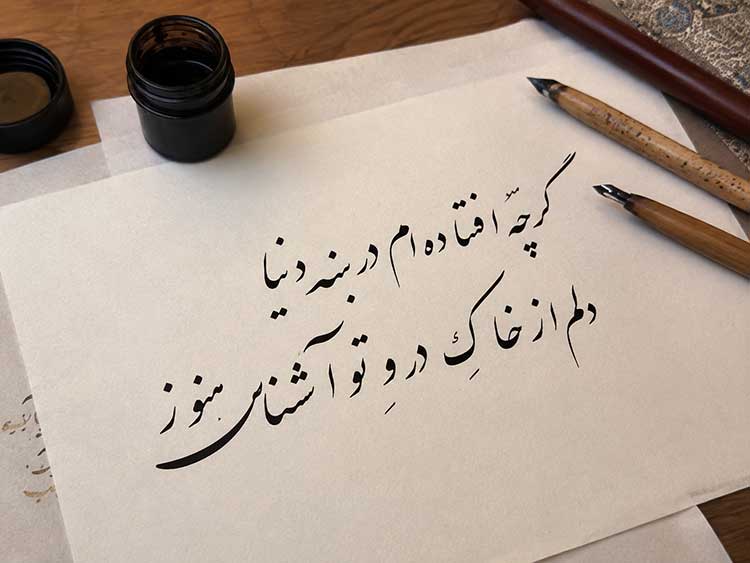 گرچه افتاده ام در بند دنیا
دلم از خاکِ در وِ تو آشناس هنوز